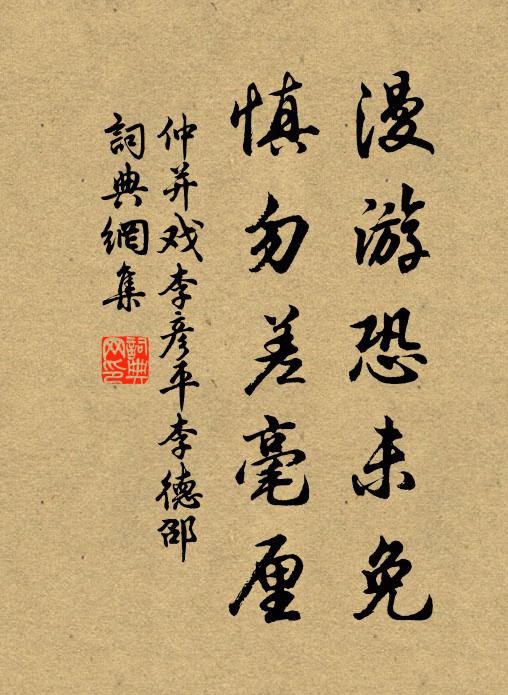 漫游恐未免
慎勿差毫厘
仲并戏李彦平李德邵
詞典網集
詞典网印